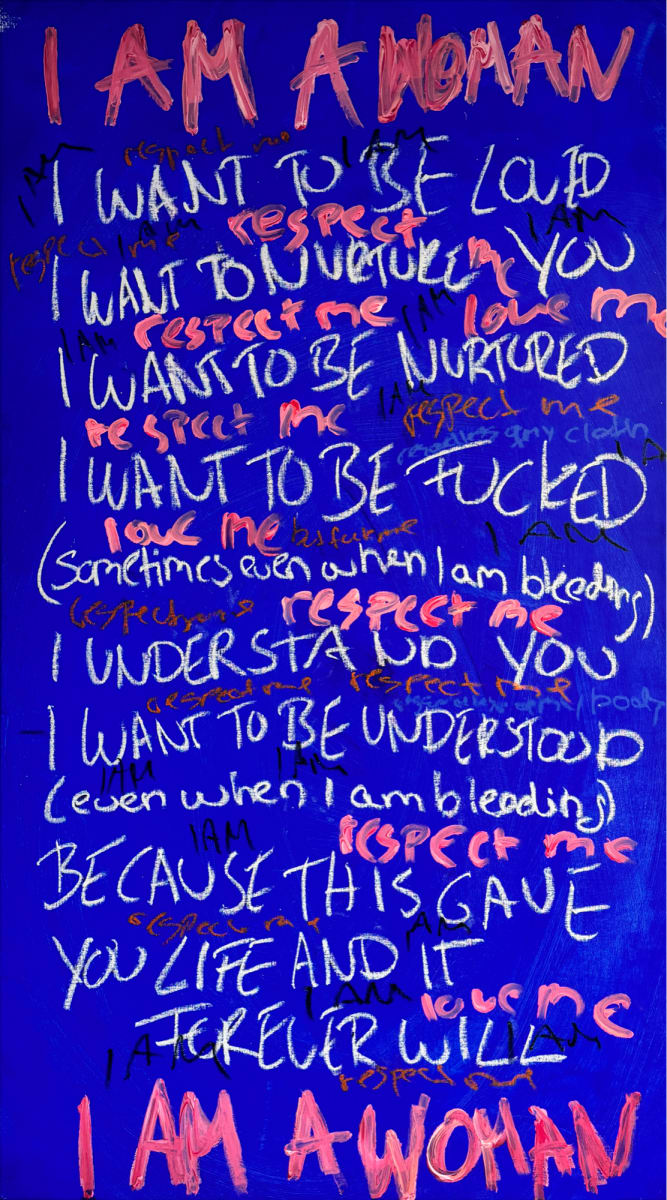 I AM A WOMAN
respect me
I AM I AM
I WANT TO BE LOVED
respect I AM
respect me I AM me
I WANT TO NURTURE YOU
respect me I AM love me
I AM
I WANT TO BE NURTURED
I AM
respect me respect me
I WANT TO BE FUCKED
love me I AM
(sometimes even when I am bleeding)
respect me respect me
I UNDERSTAND YOU
respect me respect me
body
I WANT TO BE UNDERSTOOD
I AM I AM
(even when I am bleeding)
I AM respect me
BECAUSE THIS GAVE
respect me I AM
YOU LIFE AND IT
I AM love me
FOREVER WILL
I AM I AM
respect me
I AM A WOMAN